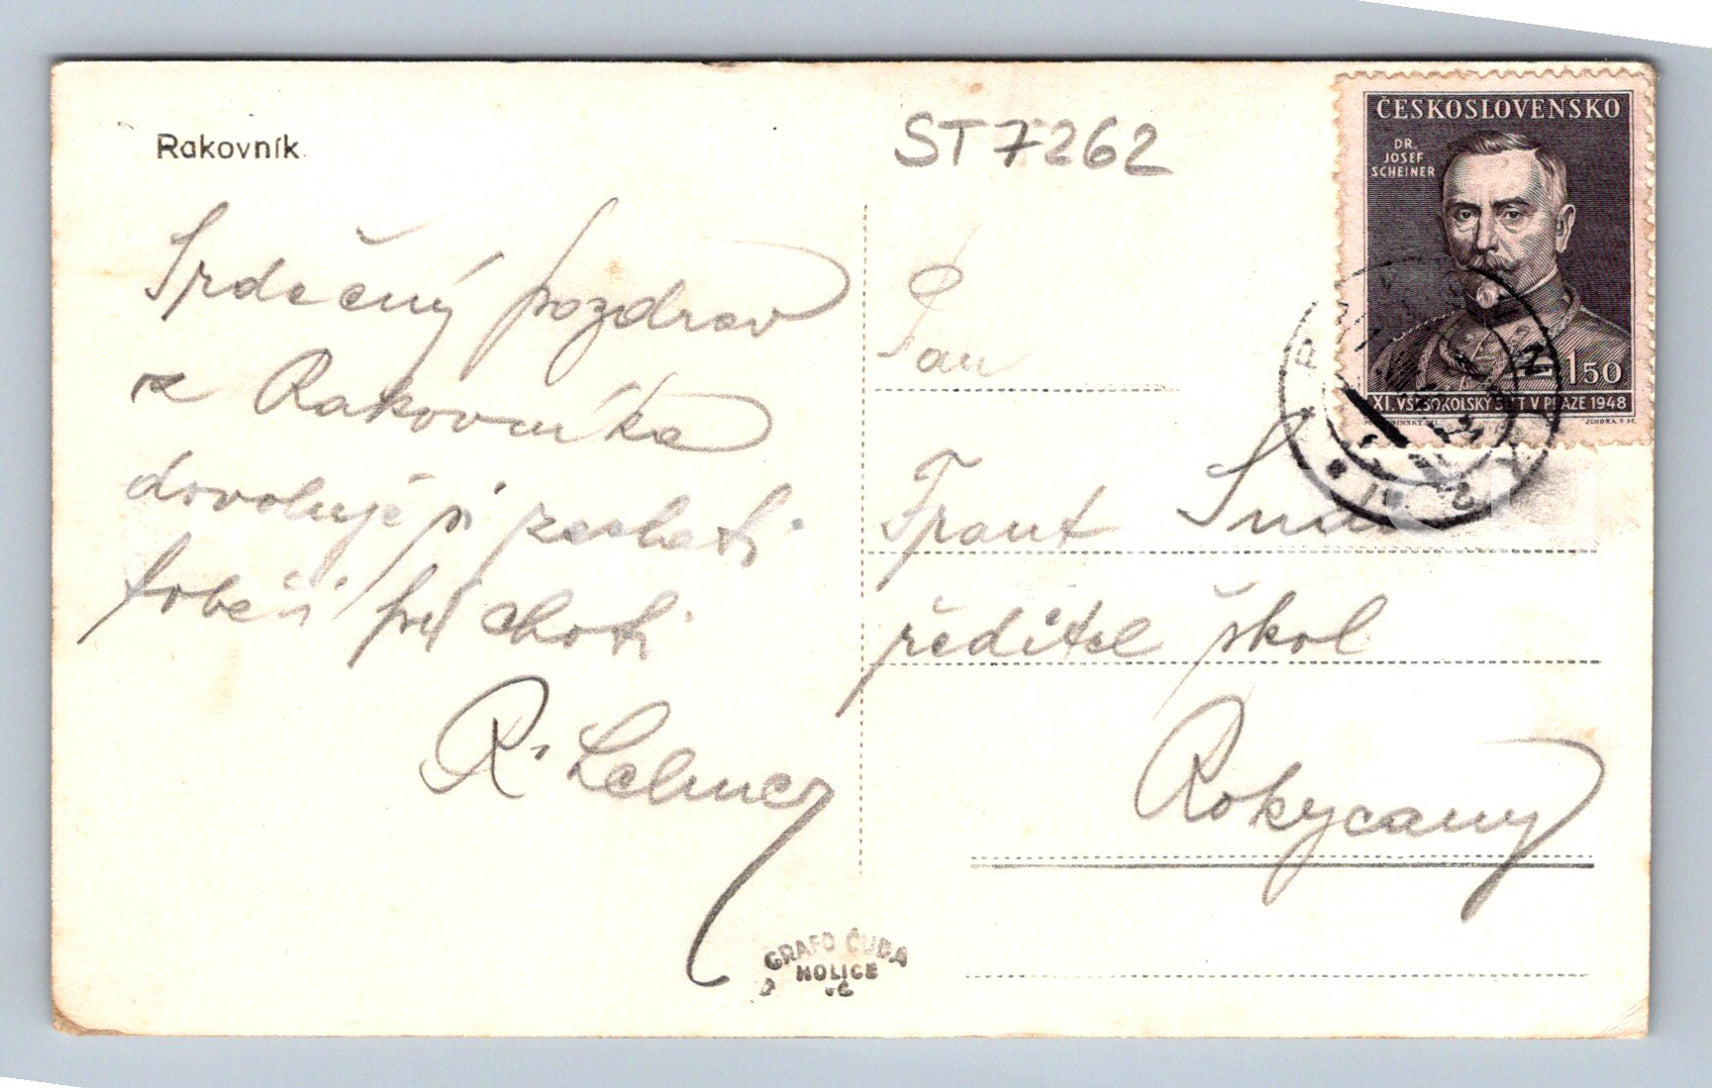 Rakovník
ST7262
ČESKOSLOVENSKO
DR.
JOSEF
SCHEINER
1·50
XI. VŠESOKOLSKÝ SLET V PRAZE 1948
JINDRA SC.
Srdečný pozdrav
z Rakovníka
dovoluje si zaslati
tobě i choti
R. Lehner
Pan
Frant
ředitel škol
Rokycany
GRAFO ČUDA
HOLICE